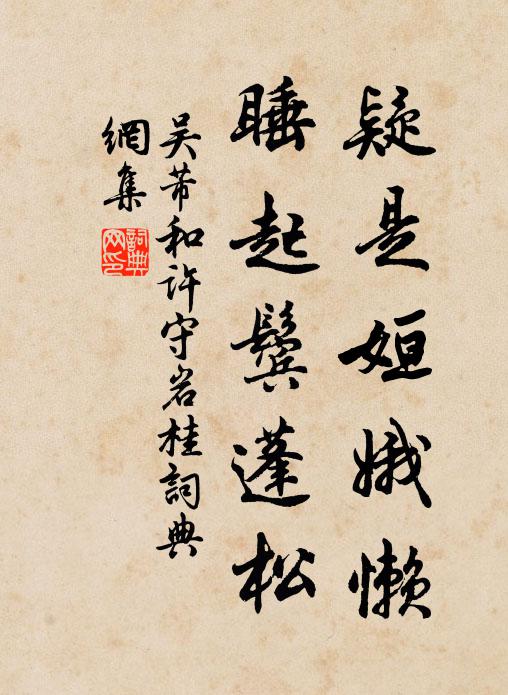 疑是姮娥懶
睡起鬢蓬松
吴芾和許守岩桂詞典
網集
詞典
网印